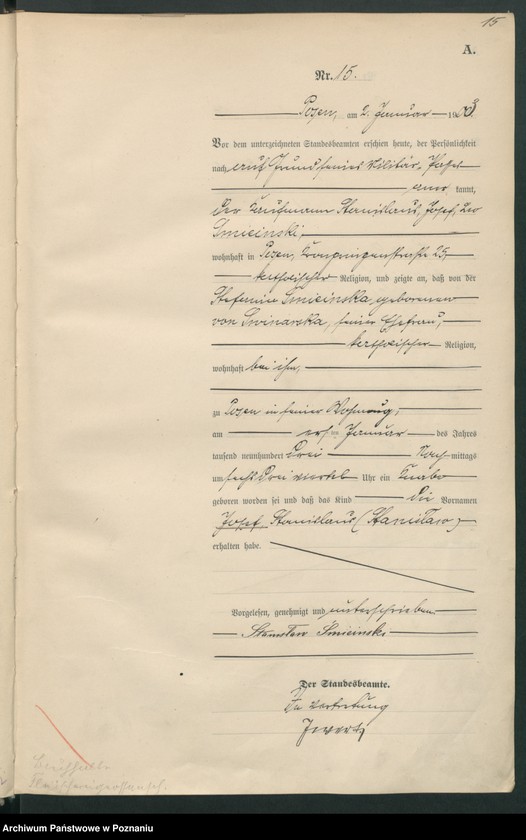 15
A.
Nr. 15.
Posen, am 2. Januar 1903.
Vor dem unterzeichneten Standesbeamten erschien heute, der Persönlichkeit
nach auf Grund seines Militär-Passes
aner kannt,
der Kaufmann Stanislaus, Josef, Leo
Smicinski,
wohnhaft in Posen, 25,
katholischer Religion, und zeigte an, daß von der
Stefania Smicinska, geborenen
von Swinarska, seiner Ehefrau,
katholischer Religion,
wohnhaft bei ihm,
zu Posen in seiner Wohnung,
am ersten Januar des Jahres
tausend neunhundert drei Nach mittags
um sechs drei viertel Uhr ein Knabe
geboren worden sei und daß das Kind die Vornamen
Josef, Stanislaus (Stanisław)
erhalten habe.
Vorgelesen, genehmigt und unterschrieben
Stanisław Smicinski
Der Standesbeamte.
In Vertretung
Archiwum Państwowe w Poznaniu